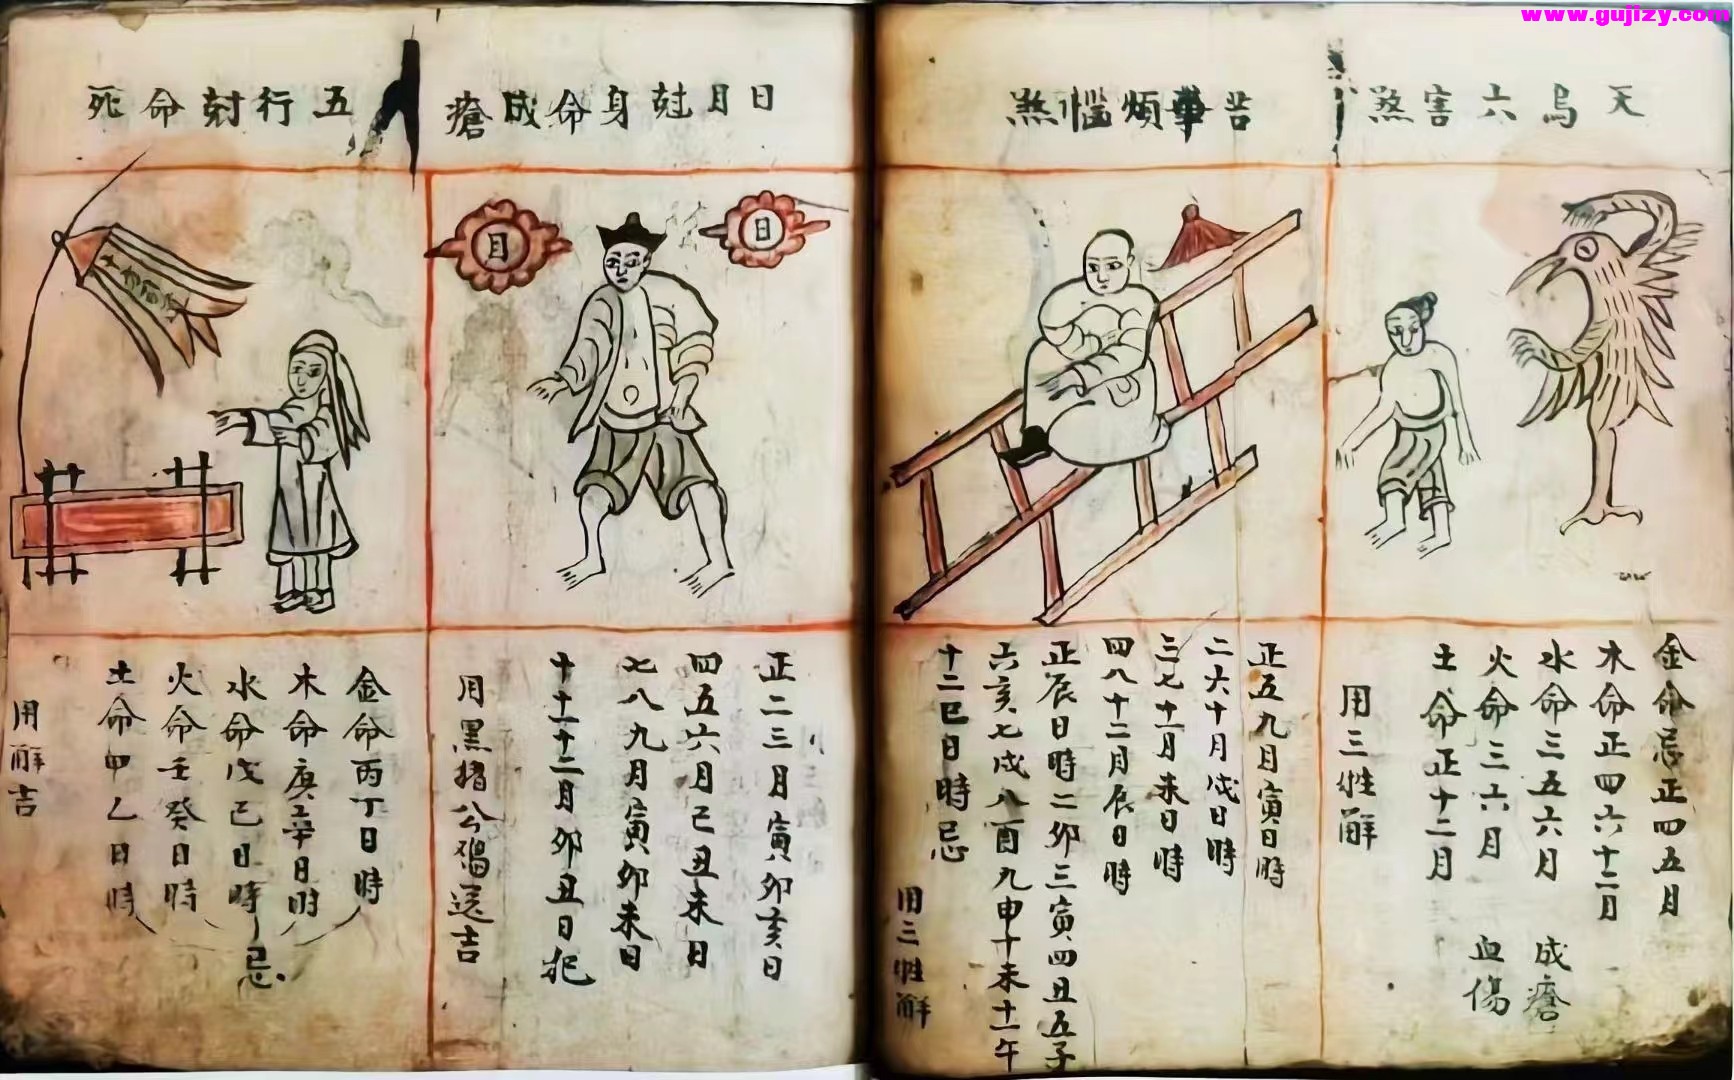 www.gujizy.com
天烏六害煞
金命忌正四五月
木命正四六十二月
水命三五六月 成瘡
火命三六月 血傷
土命正十二月
用三牲解
煩惱煞
正五九月寅日時
二六十月戌日時
三七十一月未日時
四八十二月辰日時
正辰日時二卯三寅四丑五子
六亥七戌八酉九申十未十一午
十二巳日時忌
用三牲解
日月尅身命成瘡
月
日
正二三月寅卯亥日
四五六月己丑未日
七八九月寅卯未日
十十一十二月卯丑日犯
用黑猪公鴨送吉
五行尅命死
金命丙丁日時
木命庚辛日時
水命戊己日時
火命壬癸日時
土命甲乙日時
忌
用解吉